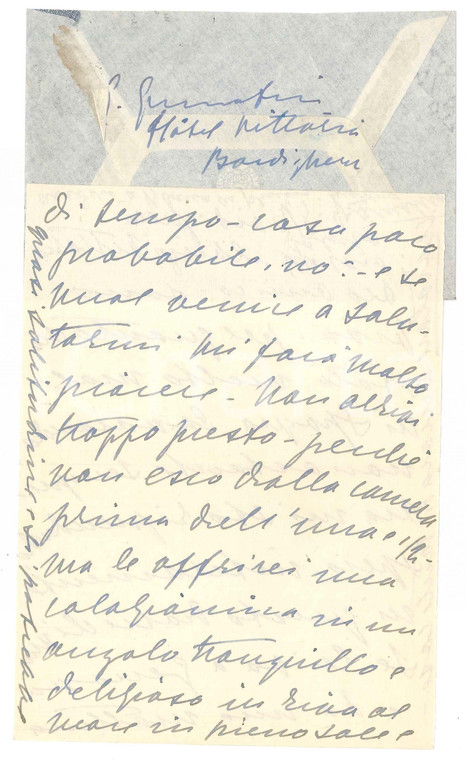 Hôtel Vittoria
Bordighera
di tempo - cosa poco
probabile, no? - e se
vuol venire a salu-
tarmi mi farà molto
piacere - Non
troppo presto - perché
non esco dalla camera
prima dell'una e 1/2 -
ma le offrirei una
colazioncina in un
angolo tranquillo e
delizioso in riva al
mare in pieno sole e
quasi solitudine